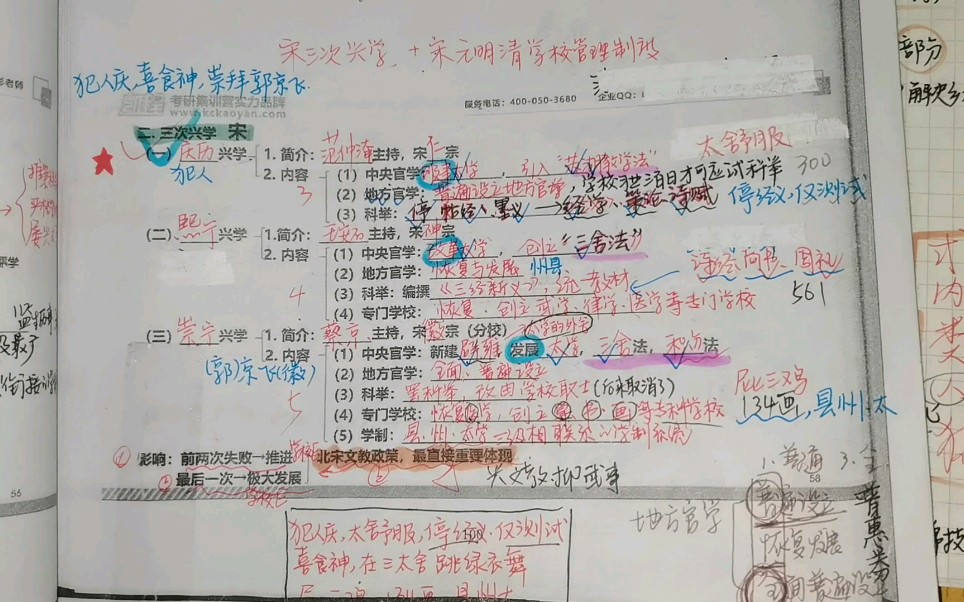 宋三次兴学 + 宋元明清学校管理制度
犯人庆,喜食神,崇拜郭京飞.
考研集训营实力品牌
www.kckaoyan.com
服务电话:400-050-3680 企业QQ:
二、三次兴学 宋
(一)庆历兴学
犯人
3
1. 简介:范仲淹主持,宋仁宗
2. 内容
(1)中央官学:改革太学, 引入“苏湖教学法”
(2)地方官学:普遍设立地方官学,学校习业三百日才可应试科举
(3)科举:停帖经、墨义→经学、策论、诗赋
太舍予服
300
停经义,仅测试
(二)熙宁兴学
4
1.简介:王安石主持,宋神宗
2. 内容
(1)中央官学:改革太学, 创立“三舍法”
(2)地方官学:恢复与发展 州县
(3)科举:编撰《三经新义》,统一教材
(4)专门学校:恢复、创立武学、律学、医学等专门学校
诗经 尚书 周礼
561
(三)崇宁兴学
(郭)京飞(徽)
5
1. 简介:蔡京主持,宋徽宗(分校) 太学的外学
2. 内容
(1)中央官学:新建辟雍,发展太学,三舍法,积分法
(2)地方官学:全面、普遍设立
(3)科举:罢科举,改由学校取士(后来取消了)
(4)专门学校:恢复医学,创立算、书、画等专科学校
(5)学制:县、州、太学三级相联系的学制系统
134画,县州太
影响:前两次失败→推进学校 北宋文教政策,最直接重要体现
最后一次→极大发展
尚文教,抑武事
56
58
地方官学
1. 普遍 3. 全
普遍设立
恢复发展
全面普遍设
犯人庆,太舍予服,停经义,仅测试
喜食神,在三太舍跳绿衣舞
部分